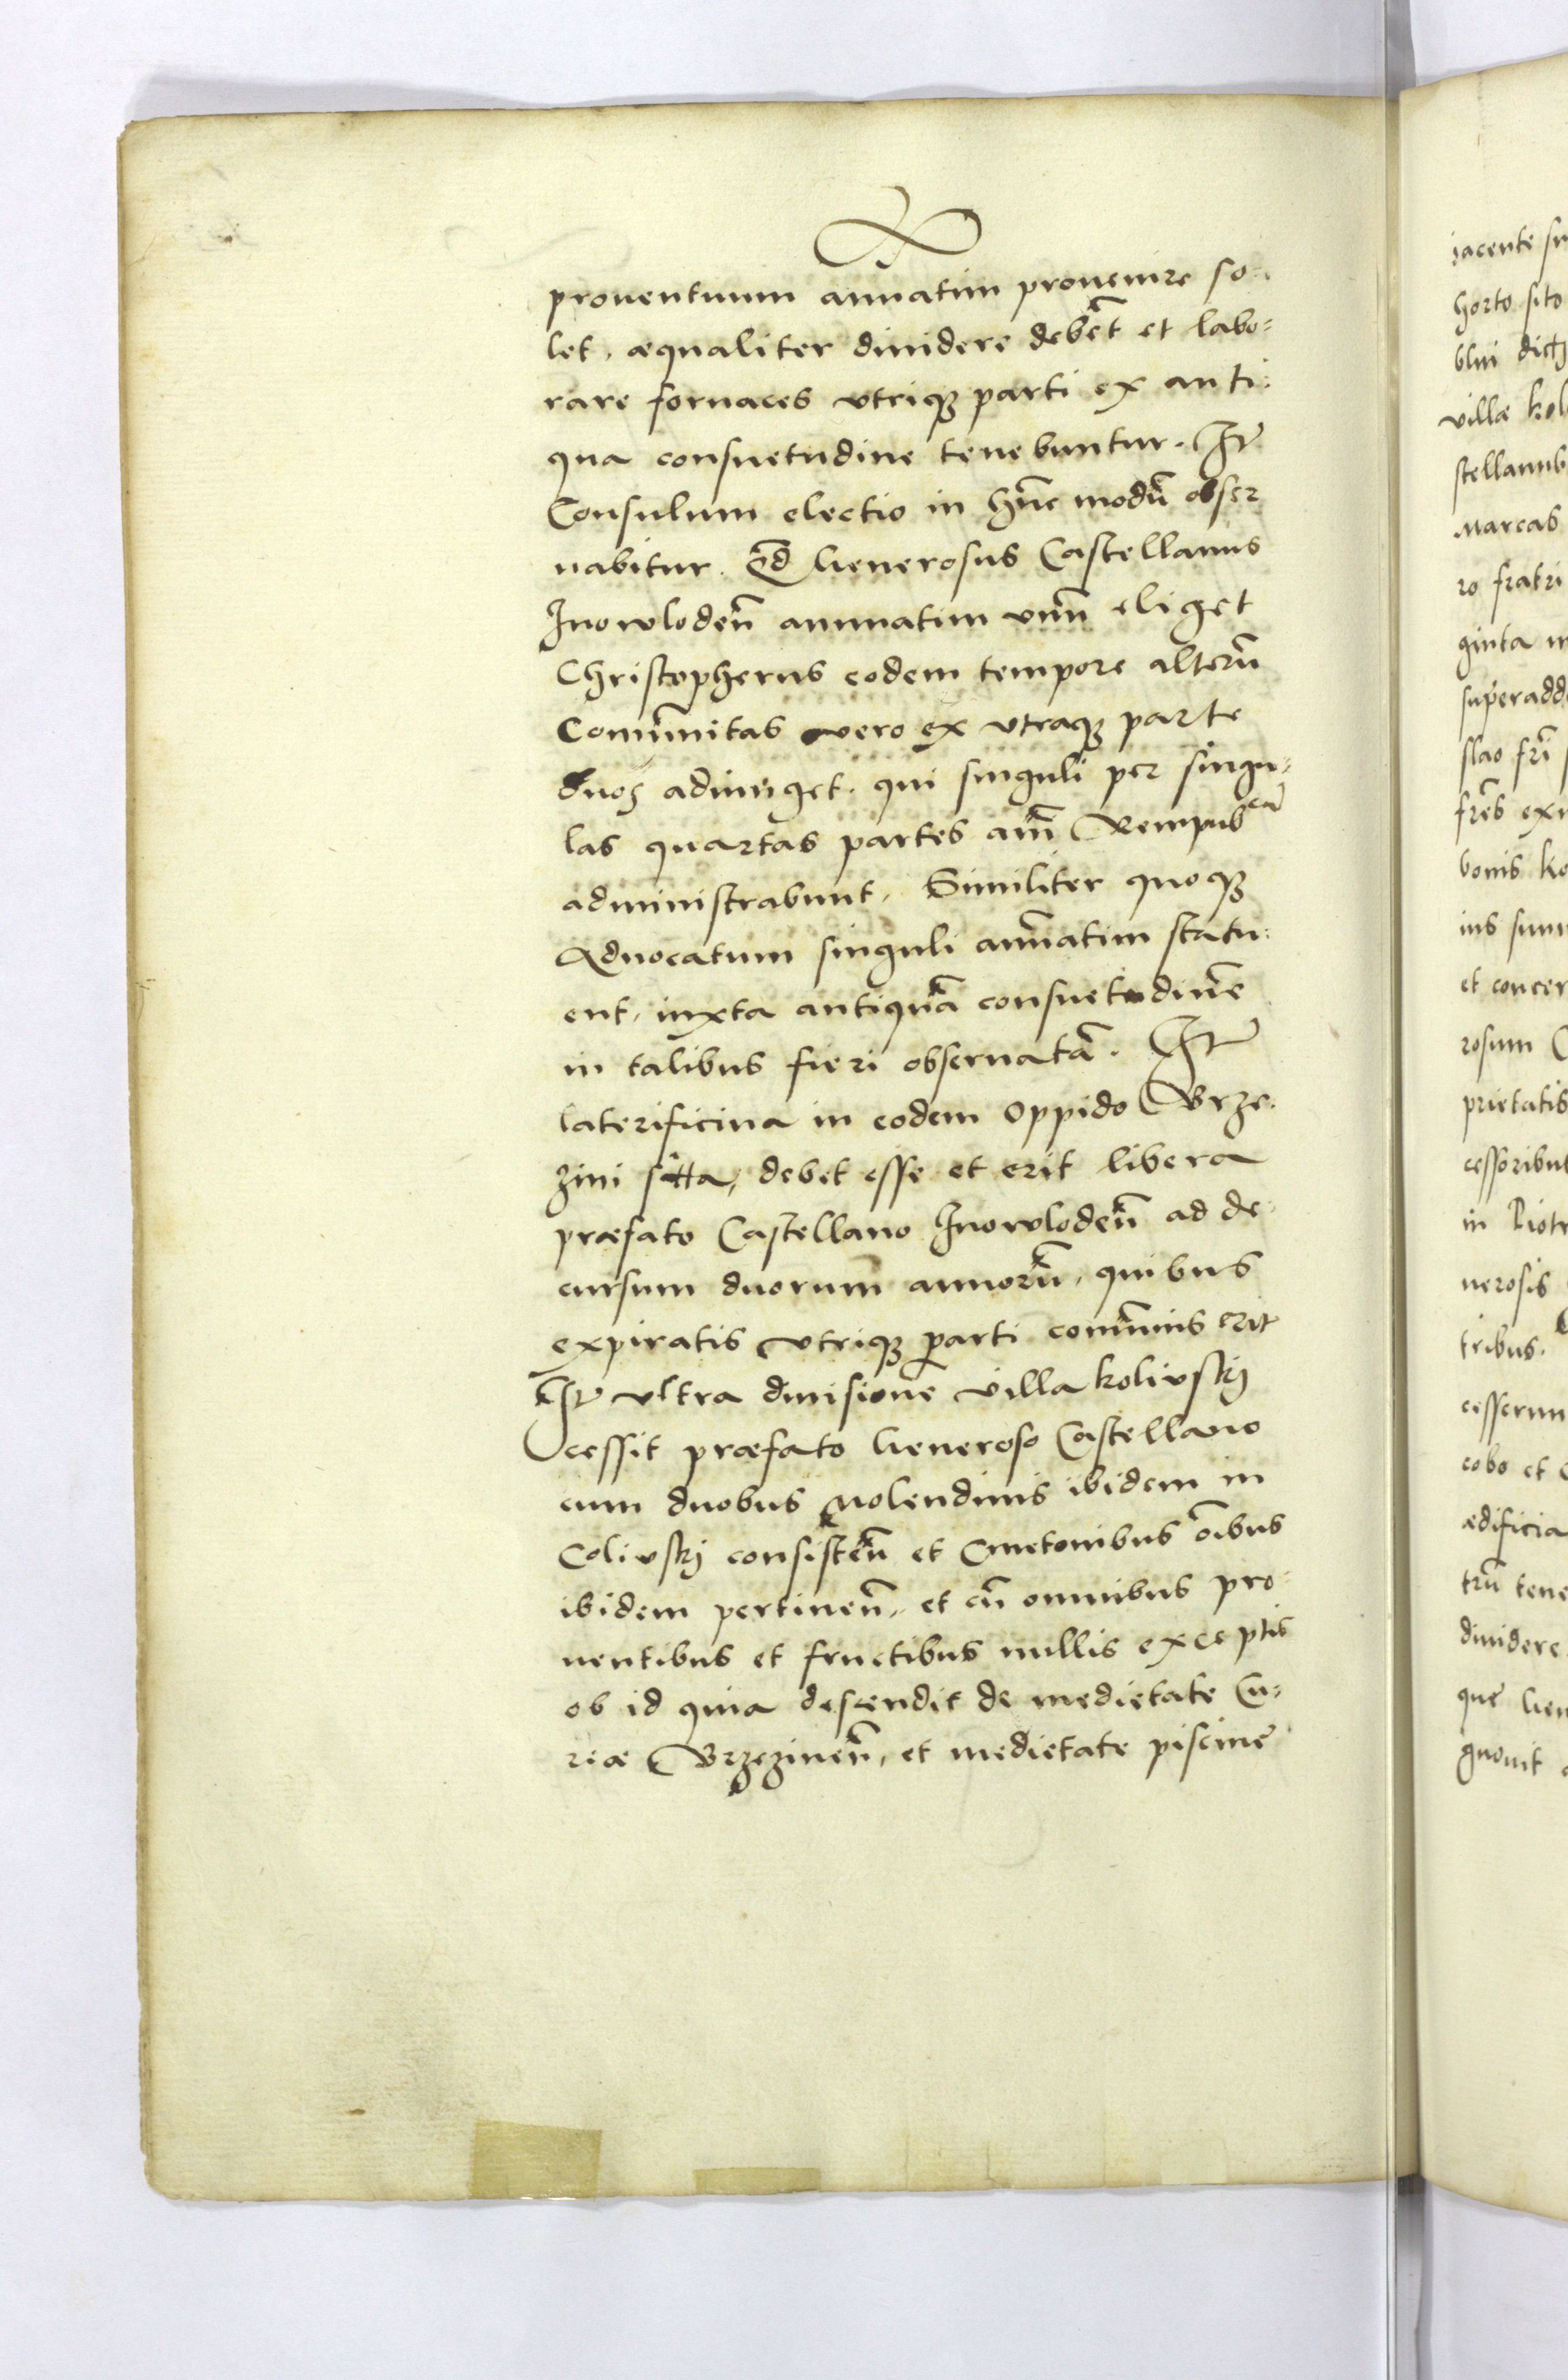 prouentuum annatim prouenire so:
let, æqualiter diuidere debēt et labo:
rare fornaces vtriqꝫ parti ex anti:
qua consuetudine tenebuntur. Itē
Consulum electio in hūc modū obser
uabitur. Qd̄ Generosus Castellanus
Inowlodeñ annuatim vnū eliget
Christopherus eodem tempore alterū
Com̄unitas vero ex vtraqꝫ parte
duos adiunget. qui singuli per singu:
las quartas partes anī Rempubcā
administrabunt. Similiter quoqꝫ
Aduocatum singuli anñatim statu:
ent, iuxta antiquā consuetudinē
in talibus fieri obseruatā. Itē
laterificina in eodem oppido Brze:
zini sitta, debet esse et erit libera
præfato Castellano Inowlodeñ ad de:
cursum duorum annorū, quibus
expiratis vtriqꝫ parti com̄unis erit
Itē vltra diuisionē villa koliuskj
cessit præfato Generoso Castellano
cum duobus Molendinis ibidem in
Coliuskj consisteñ et Cmetonibus oībus
ibidem pertineñ, et cū omnibus pro:
uentibus et fructibus nullis exceptis
ob id quia descendit de medietate Cu:
riæ Brzezineñ, et medietate piscine
iacente
horto sito
villæ kol
stellanus
Marcas
ro fratri
ginta
superadd
slao frī
frēs
bonis ko
ius
et concer
rosum
prietatis
cessoribus
in Piotr
nerosis
tribus.
cesserun
cobo et
ædificia
trū tene
diuidere
que Gen
gnouit